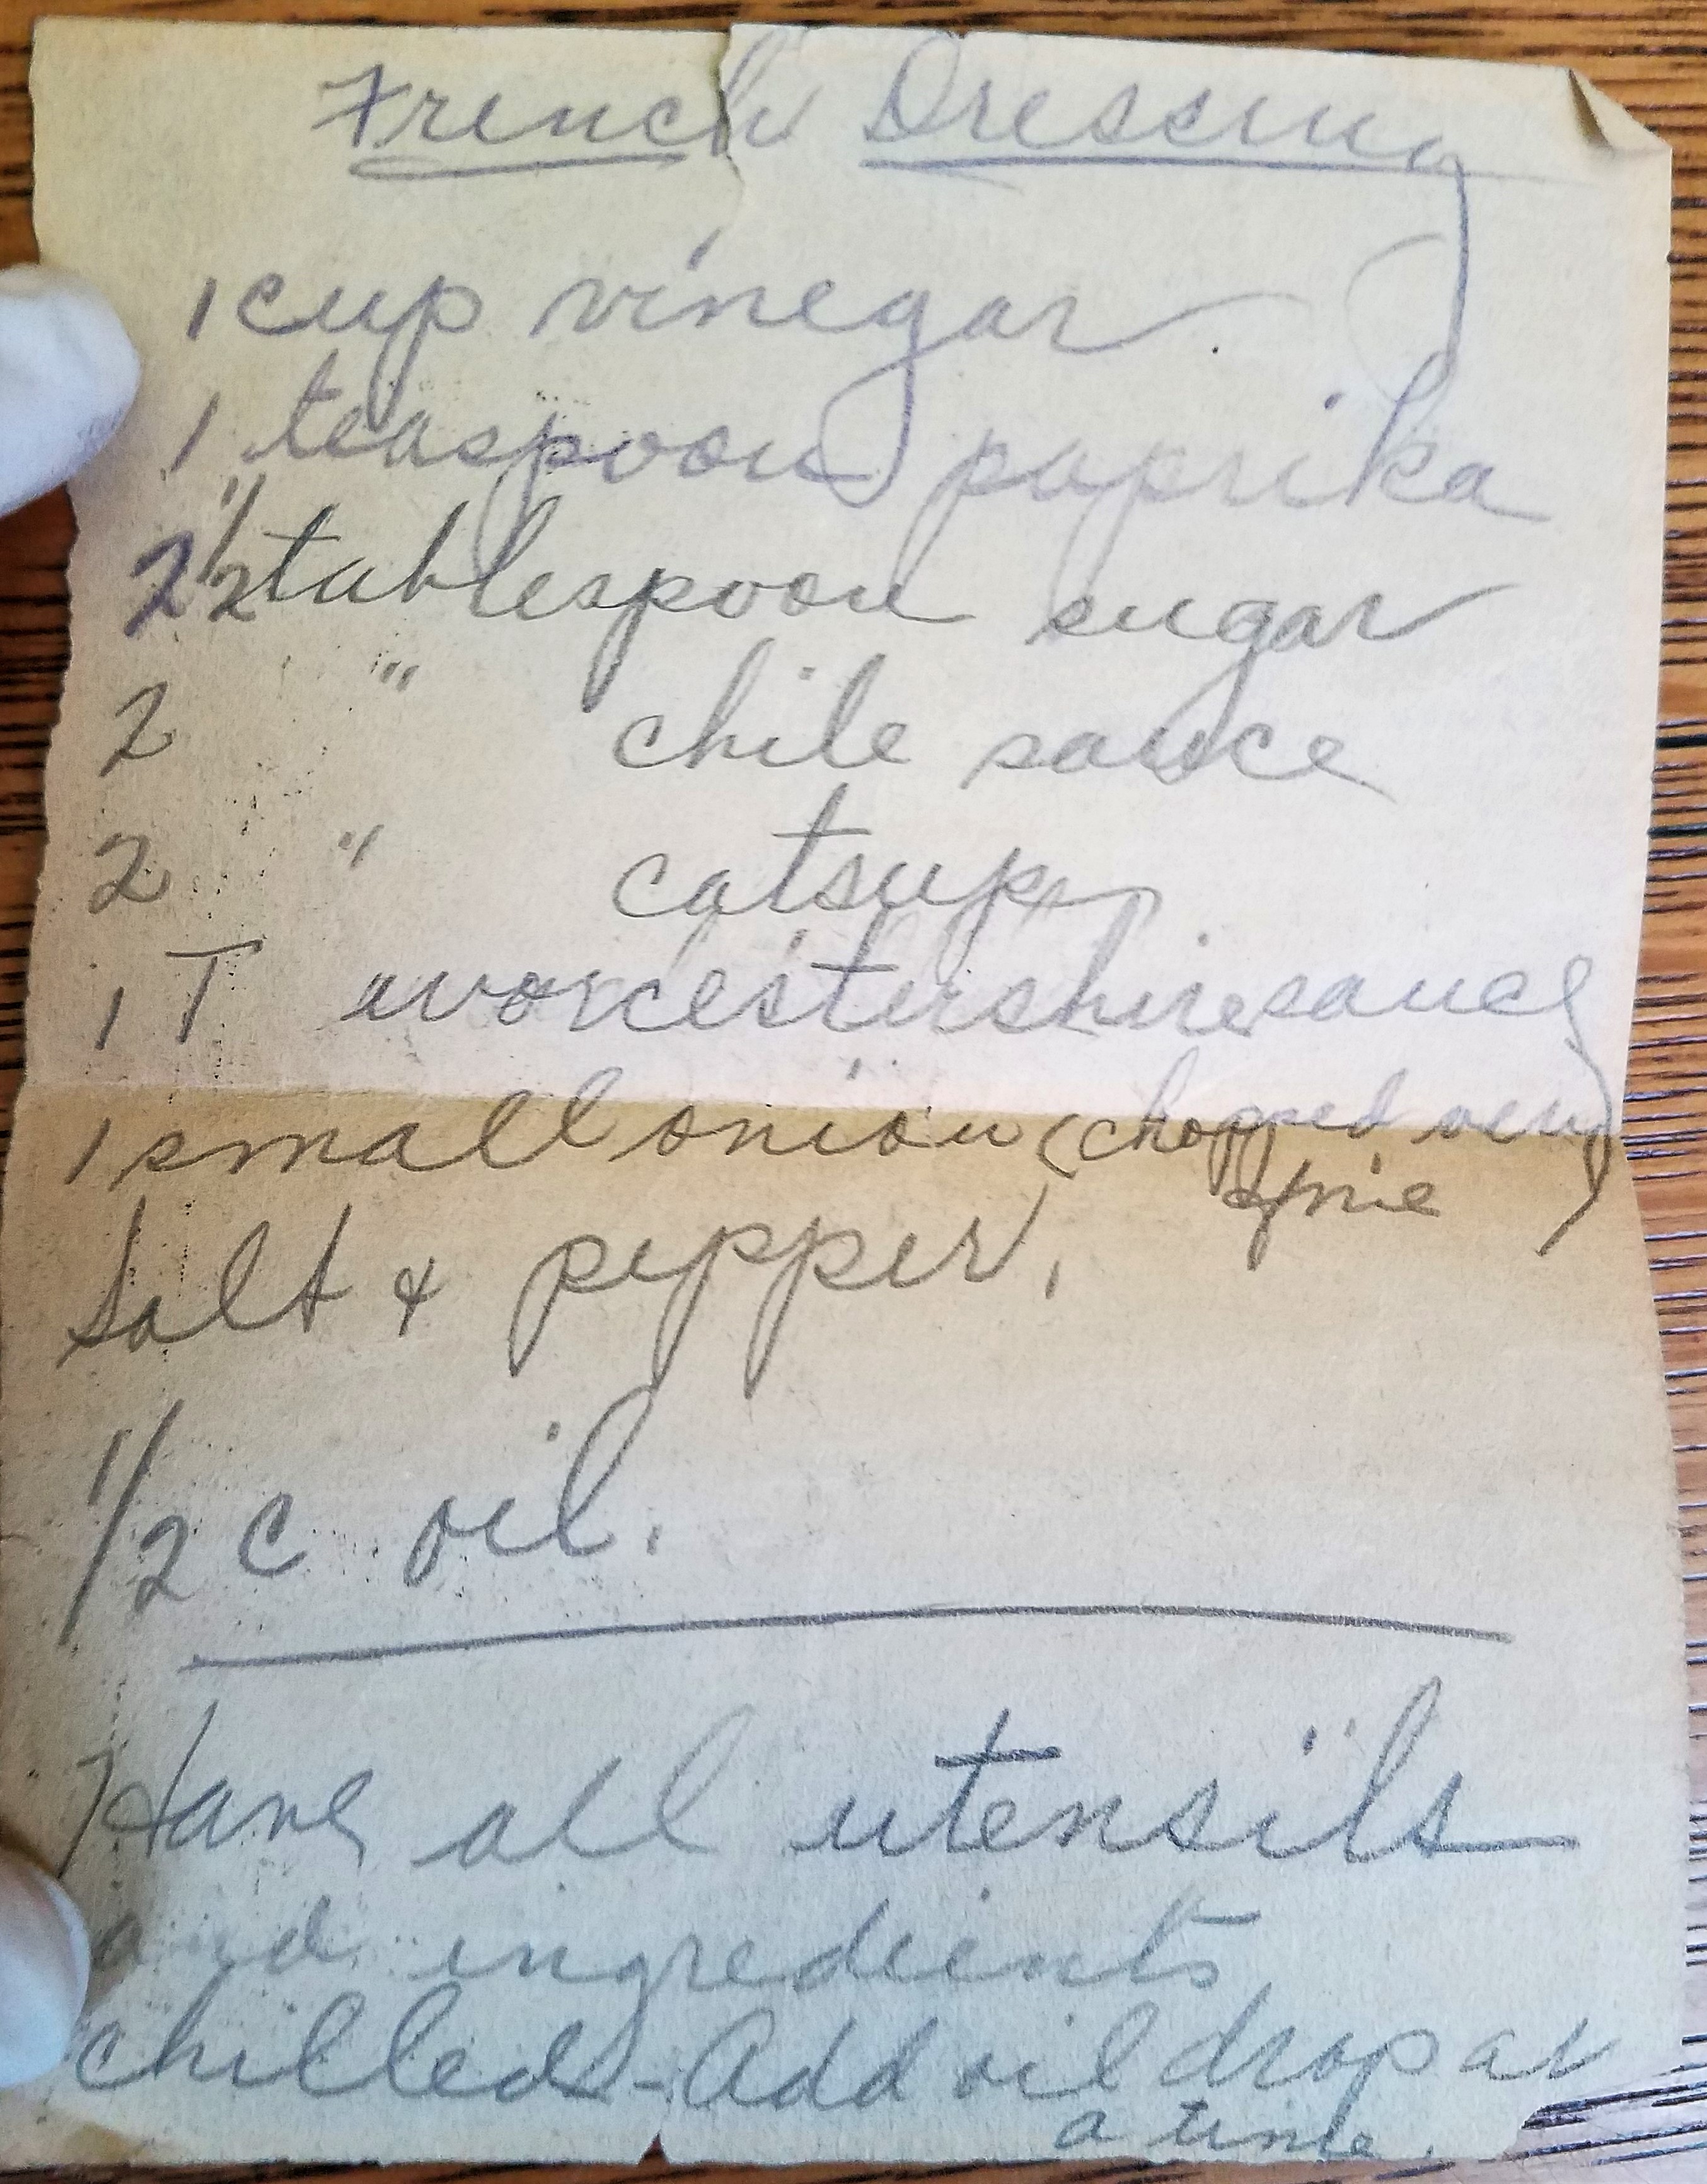 French Dressing
1 cup vinegar
1 teaspoon paprika
2 1/2 tablespoon sugar
2 " chile sauce
2 " catsup
1 T worcestershire sauce
1 small onion (chopped very
fine)
Salt & pepper,
1/2 c oil.
Have all utensils
and ingredients
chilled - Add oil drop at
a time.